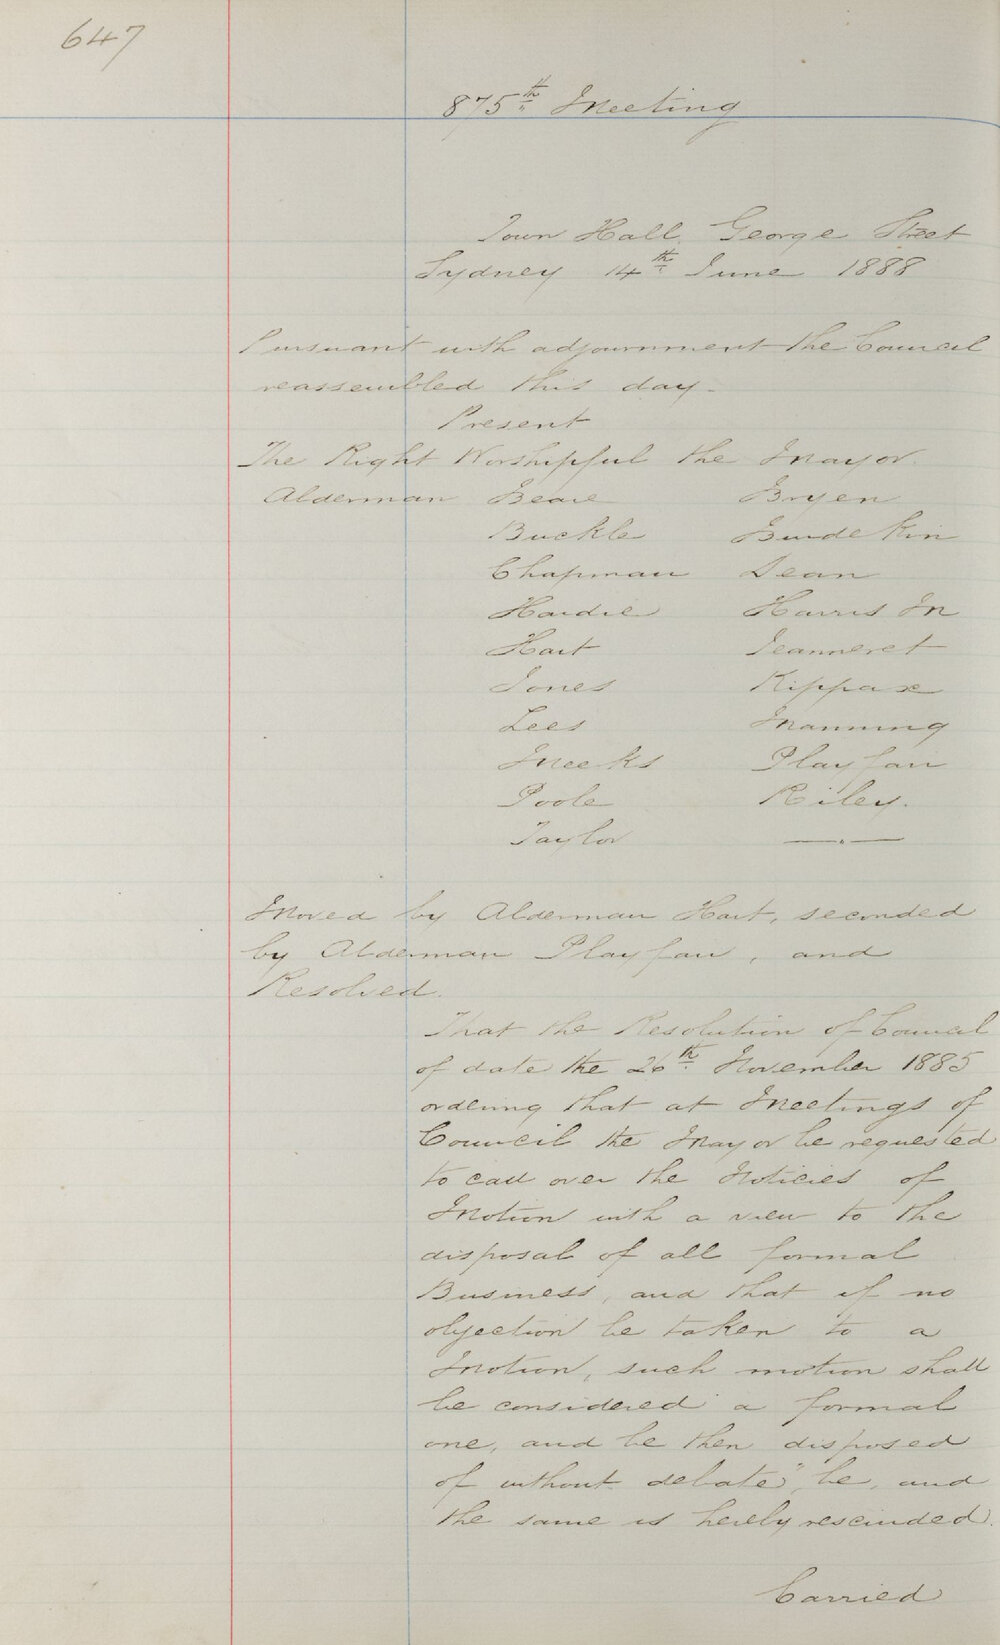 647
875th Meeting
Town Hall George Street
Sydney 14th June 1888
Pursuant with adjournment the Council
reassembled this day.
Present
The Right Worshipful the Mayor.
Alderman Beare Bryen
Buckle Burdekin
Chapman Dean
Hardie Harris Jn
Hart Jeanneret
Jones Kippax
Lees Manning
Meeks Playfair
Poole Riley.
Taylor —"—
Moved by Alderman Hart, seconded
by Alderman Playfair, and
Resolved.
That the Resolution of Council
of date the 26th November 1885
ordering that at Meetings of
Council the Mayor be requested
to call over the Noticies of
Motion with a view to the
disposal of all formal
Business, and that if no
objection be taken to a
Motion, such motion shall
be considered a formal
one, and be then disposed
of without debate", be, and
the same is hereby rescinded.
Carried